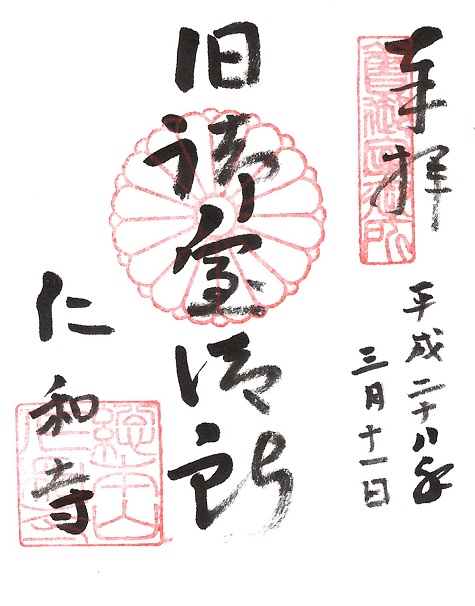 奉拝
平成二十八年
三月十一日
旧御室御所
仁和寺